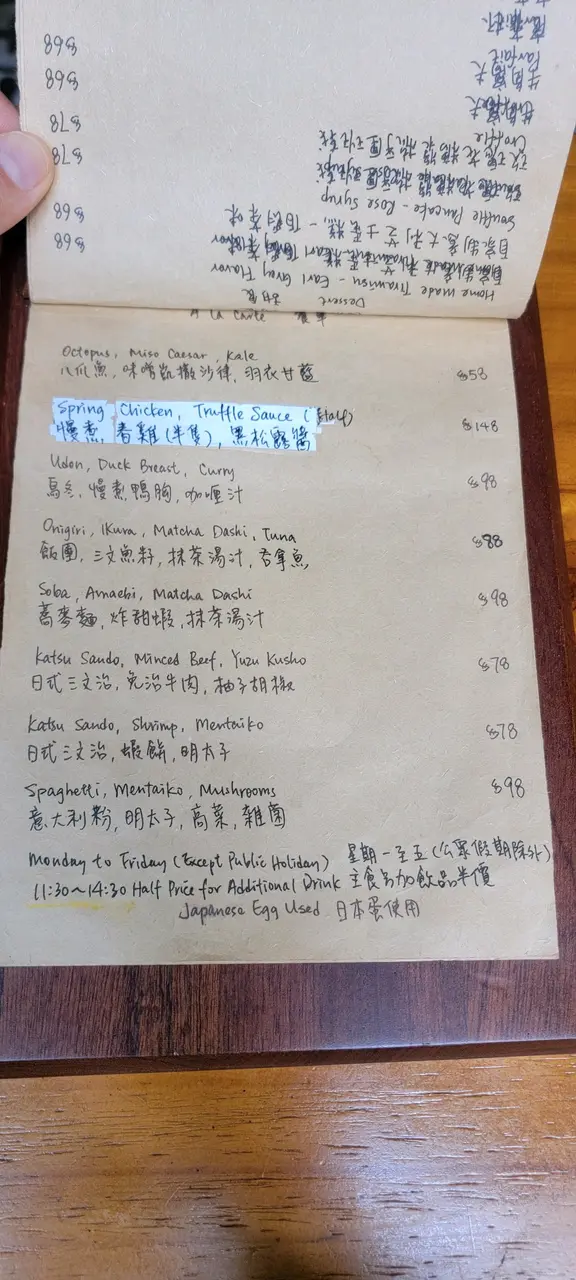 Home made Tiramisu - Earl Grey Flavor
$68
Souffle Pancake - Rose Syrup
$68
$78
Croffle
$78
Parfait
$68
$68
Dessert 甜食
A La Carte
Octopus, Miso Caesar, Kale
八爪魚, 味噌凱撒沙律, 羽衣甘藍
$58
Spring Chicken, Truffle Sauce (Half)
慢煮春雞(半隻), 黑松露醬
$148
Udon, Duck Breast, Curry
烏冬, 慢煮鴨胸, 咖喱汁
$98
Onigiri, Ikura, Matcha Dashi, Tuna
飯團, 三文魚籽, 抹茶湯汁, 吞拿魚
$88
Soba, Amaebi, Matcha Dashi
蕎麥麵, 炸甜蝦, 抹茶湯汁
$98
Katsu Sando, Minced Beef, Yuzu Kusho
日式三文治, 免治牛肉, 柚子胡椒
$78
Katsu Sando, Shrimp, Mentaiko
日式三文治, 蝦餅, 明太子
$78
Spaghetti, Mentaiko, Mushrooms
意大利粉, 明太子, 高菜, 雜菌
$98
Monday to Friday (Except Public Holiday) 星期一至五(公眾假期除外)
11:30~14:30 Half Price for Additional Drink 主食另加飲品半價
Japanese Egg Used 日本蛋使用